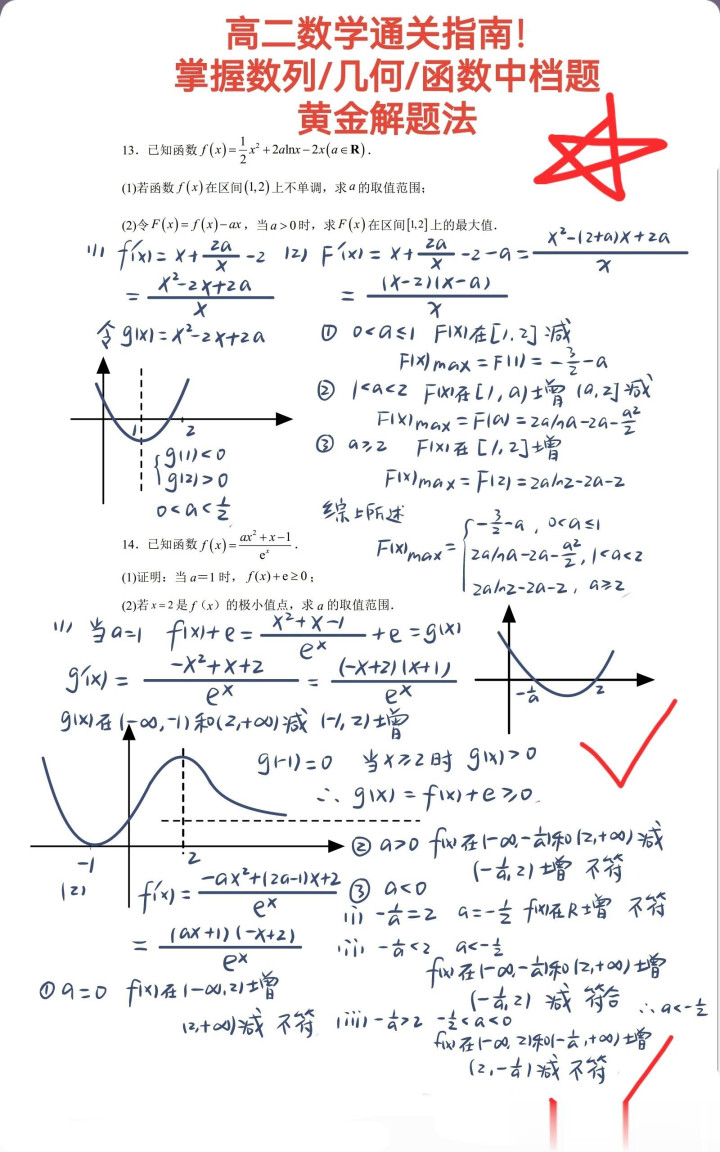 高二数学通关指南！
掌握数列/几何/函数中档题
黄金解题法
13. 已知函数 f(x)=1/2x²+2alnx-2x(a∈R).
(1)若函数 f(x) 在区间(1,2)上不单调，求 a 的取值范围；
(2)令 F(x)=f(x)-ax，当 a>0 时，求 F(x) 在区间[1,2]上的最大值.
(1) f'(x)=x+2a/x-2
=(x²-2x+2a)/x
令g(x)=x²-2x+2a
1 2
{g(1)<0
g(2)>0
0<a<1/2
(2) F'(x)=x+2a/x-2-a=(x²-(2+a)x+2a)/x
=(x-2)(x-a)/x
① 0<a≤1 F(x)在[1,2]减
F(x)max=F(1)=-3/2-a
② 1<a<2 F(x)在[1,a)增 (a,2]减
F(x)max=F(a)=2alna-2a-a²/2
③ a≥2 F(x)在[1,2]增
F(x)max=F(2)=2aln2-2a-2
综上所述
F(x)max={-3/2-a, 0<a≤1
2alna-2a-a²/2, 1<a<2
2aln2-2a-2, a≥2
14. 已知函数 f(x)=(ax²+x-1)/eˣ.
(1)证明：当 a=1 时，f(x)+e≥0；
(2)若 x=2 是 f（x）的极小值点，求 a 的取值范围.
(1) 当a=1 f(x)+e=(x²+x-1)/eˣ+e=g(x)
g'(x)=(-x²+x+2)/eˣ=(-x+2)(x+1)/eˣ
g(x)在(-∞,-1)和(2,+∞)减 (-1,2)增
g(-1)=0 当x≥2时 g(x)>0
∴ g(x)=f(x)+e≥0.
-1 2
(2) f'(x)=(-ax²+(2a-1)x+2)/eˣ
=(ax+1)(-x+2)/eˣ
① a=0 f(x)在(-∞,2)增
(2,+∞)减 不符
-1/a 2
② a>0 f(x)在(-∞,-1/a)和(2,+∞)减
(-1/a,2)增 不符
③ a<0
(i) -1/a=2 a=-1/2 f(x)在R增 不符
(ii) -1/a<2 a<-1/2
f(x)在(-∞,-1/a)和(2,+∞)增
(-1/a,2) 减 符合 ∴a<-1/2
(iii) -1/a>2 -1/2<a<0
f(x)在(-∞,2)和(-1/a,+∞)增
(2,-1/a)减 不符